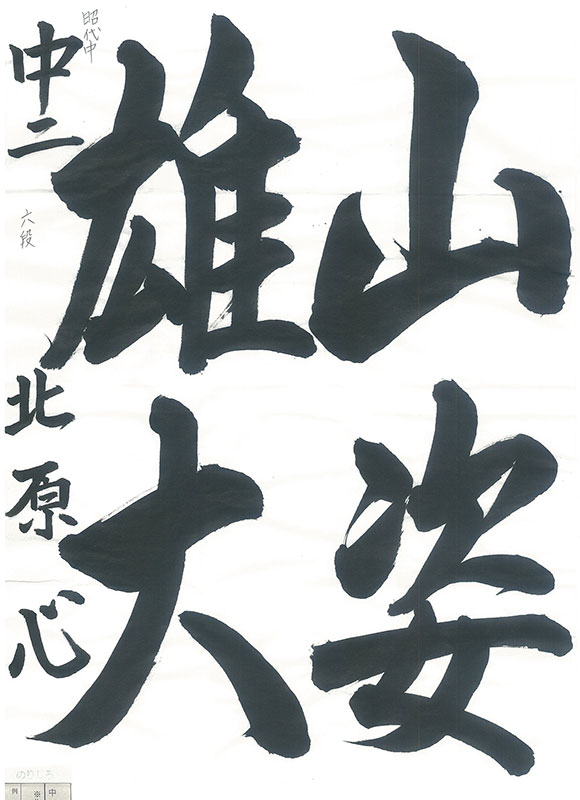 山姿
雄大
昭代中
中二
六段
北原心
のりしろ
中
※
例